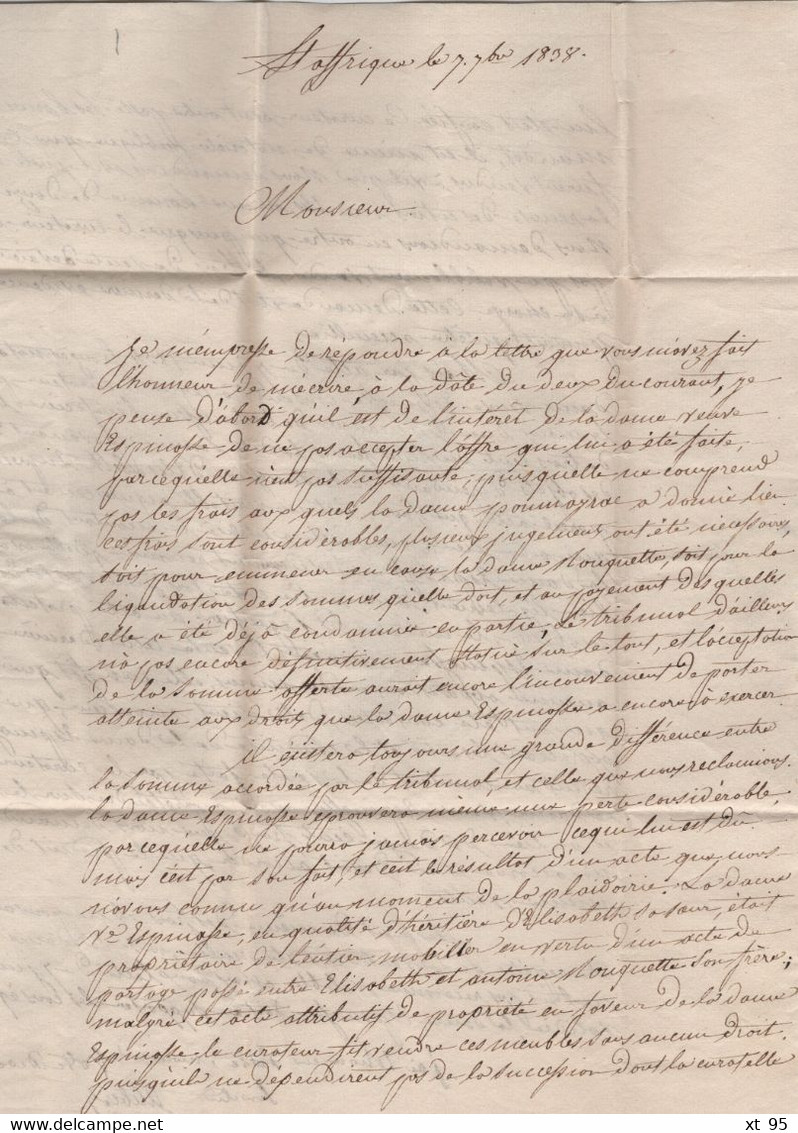 St affrique le 7. 7bre 1838.
Monsieur
Je m'empresse de répondre à la lettre que vous m'avez fait
l'honneur de m'écrire à la date du deux du courant, je
pense d'abord qu'il est de l'intérêt de la dame veuve
Espinasse de ne pas accepter l'offre qui lui a été faite,
parcequ'elle n'est pas suffisante, puisqu'elle ne comprend
pas les frais aux quels la dame pounayrac a donné lieu
ces frais sont considérables, plusieurs jugements ont été nécessaires,
soit pour emmener en cause la dame Mouquette, soit pour la
liquidation des sommes qu'elle doit, et au payement des quelles
elle a été déjà condamnée en partie, Le tribunal d'ailleurs
n'a pas encore définitivement statué sur le tout, et l'acceptation
de la somme offerte aurait encore l'inconvenient de porter
atteinte aux droits que la dame Espinasse a encore à exercer.
il existera toujours une grande différence entre
la somme accordée par le tribunal, et celle que nous reclamions.
la dame Espinasse eprouvera même une perte considérable,
parcequ'elle ne pourra jamais percevoir ce qui lui est dû.
mais c'est par son fait, et c'est le résultat d'un acte que nous
n'avons connu qu'au moment de la plaidoirie. La dame
Ve Espinasse, en qualité d'héritière d'Elisabeth sa sœur, était
propriétaire de l'entier mobilier en vertu d'un acte de
partage passé entre Elisabeth et antoine Mouquette son frère;
malgré cet acte attributif de propriété en faveur de la dame
Espinasse le curateur fit vendre ces meubles sans aucun droit
puisqu'ils ne dépendirent pas de la succession dont la curatelle
xt 95